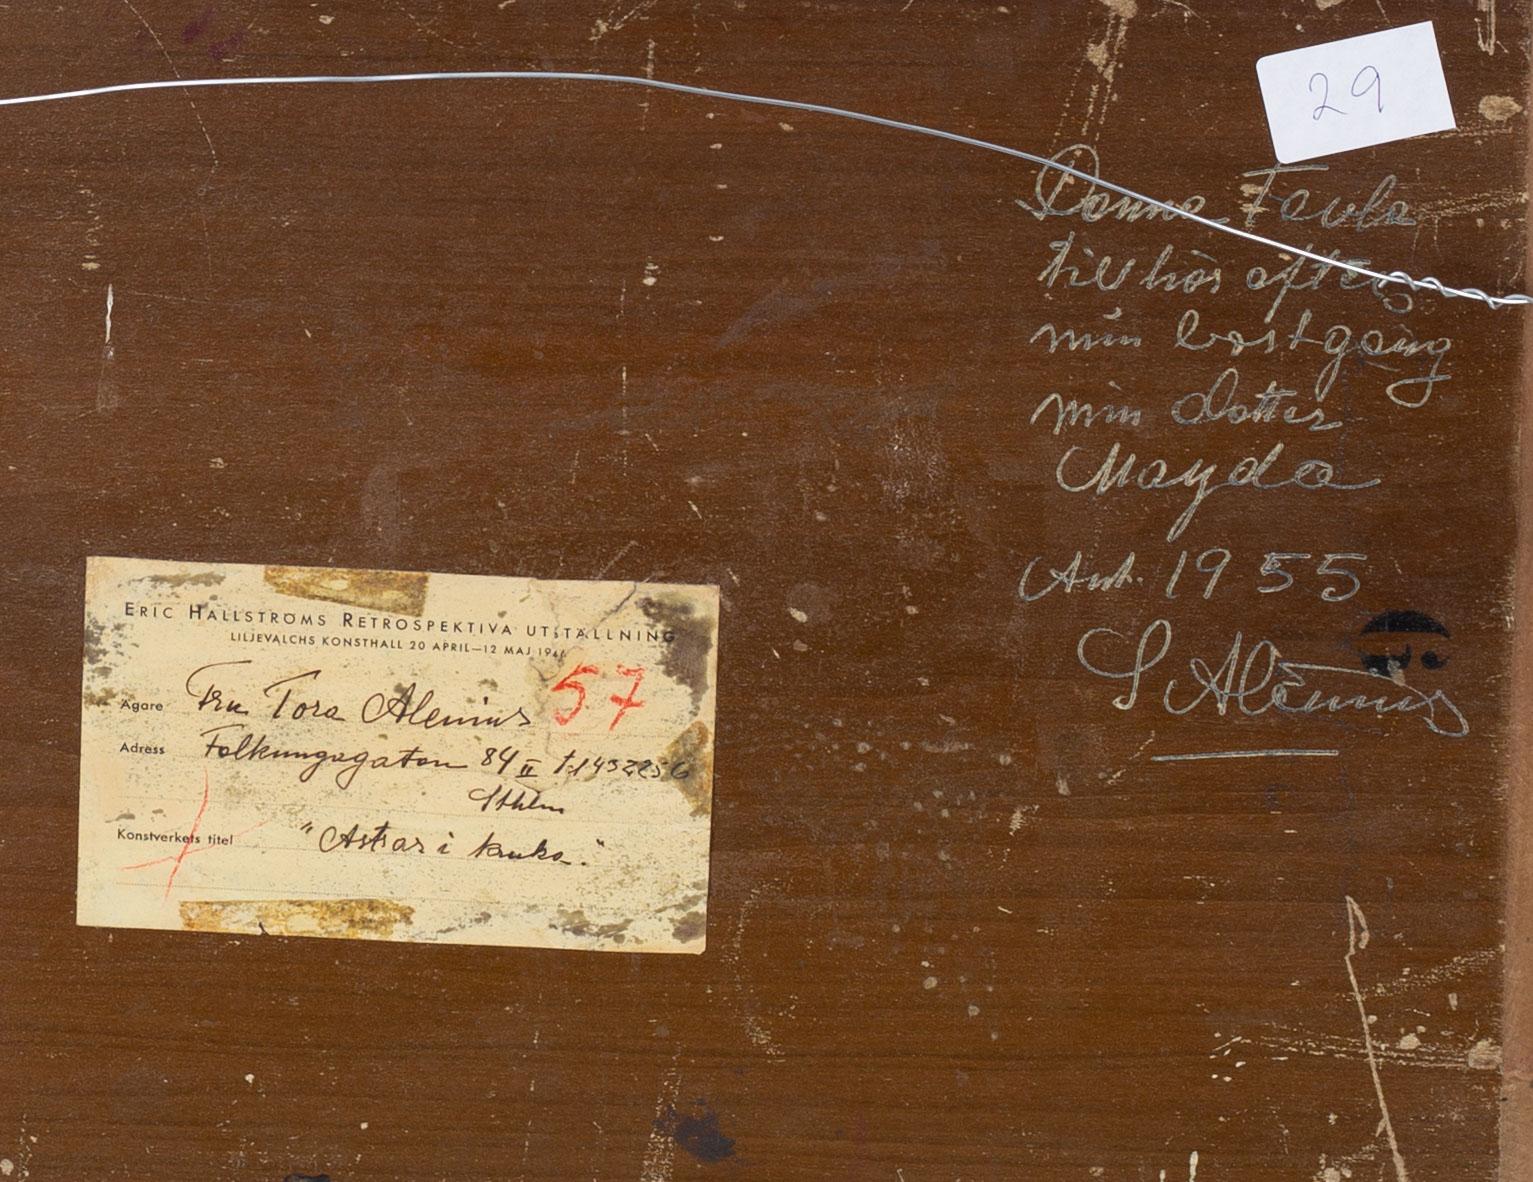 29
Denna Tavla
tillhör efter
min bortgång
min dotter
Mayda
Ant. 1955
S Alenius
ERIC HALLSTRÖMS RETROSPEKTIVA UTSTÄLLNING
LILJEVALCHS KONSTHALL 20 APRIL—12 MAJ 1946
57
Ägare Fru Tora Alenius
Adress Folkungagatan 84 II
Sthlm
Konstverkets titel "Astrar i kruka."